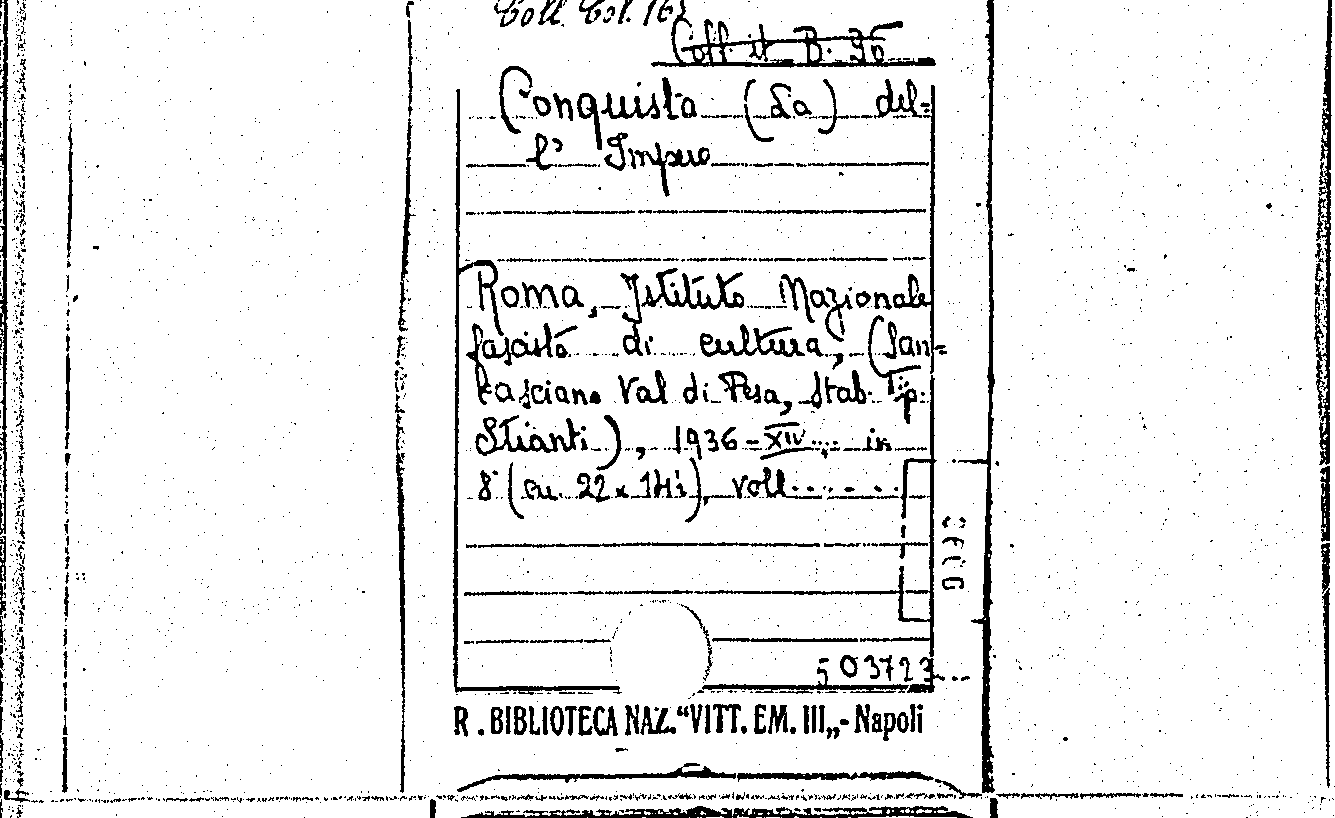 Coll. Col. 163
Coll. it B. 36
Conquista (La) del=
l' Impero
Roma, Istituto Nazionale
fascista di cultura, (San=
Casciano Val di Pesa, Stab. Tip.
Stianti), 1936-XIV...., in
8° ( 22 x 14½), voll......
503723
R. BIBLIOTECA NAZ. “VITT. EM. III„ - Napoli